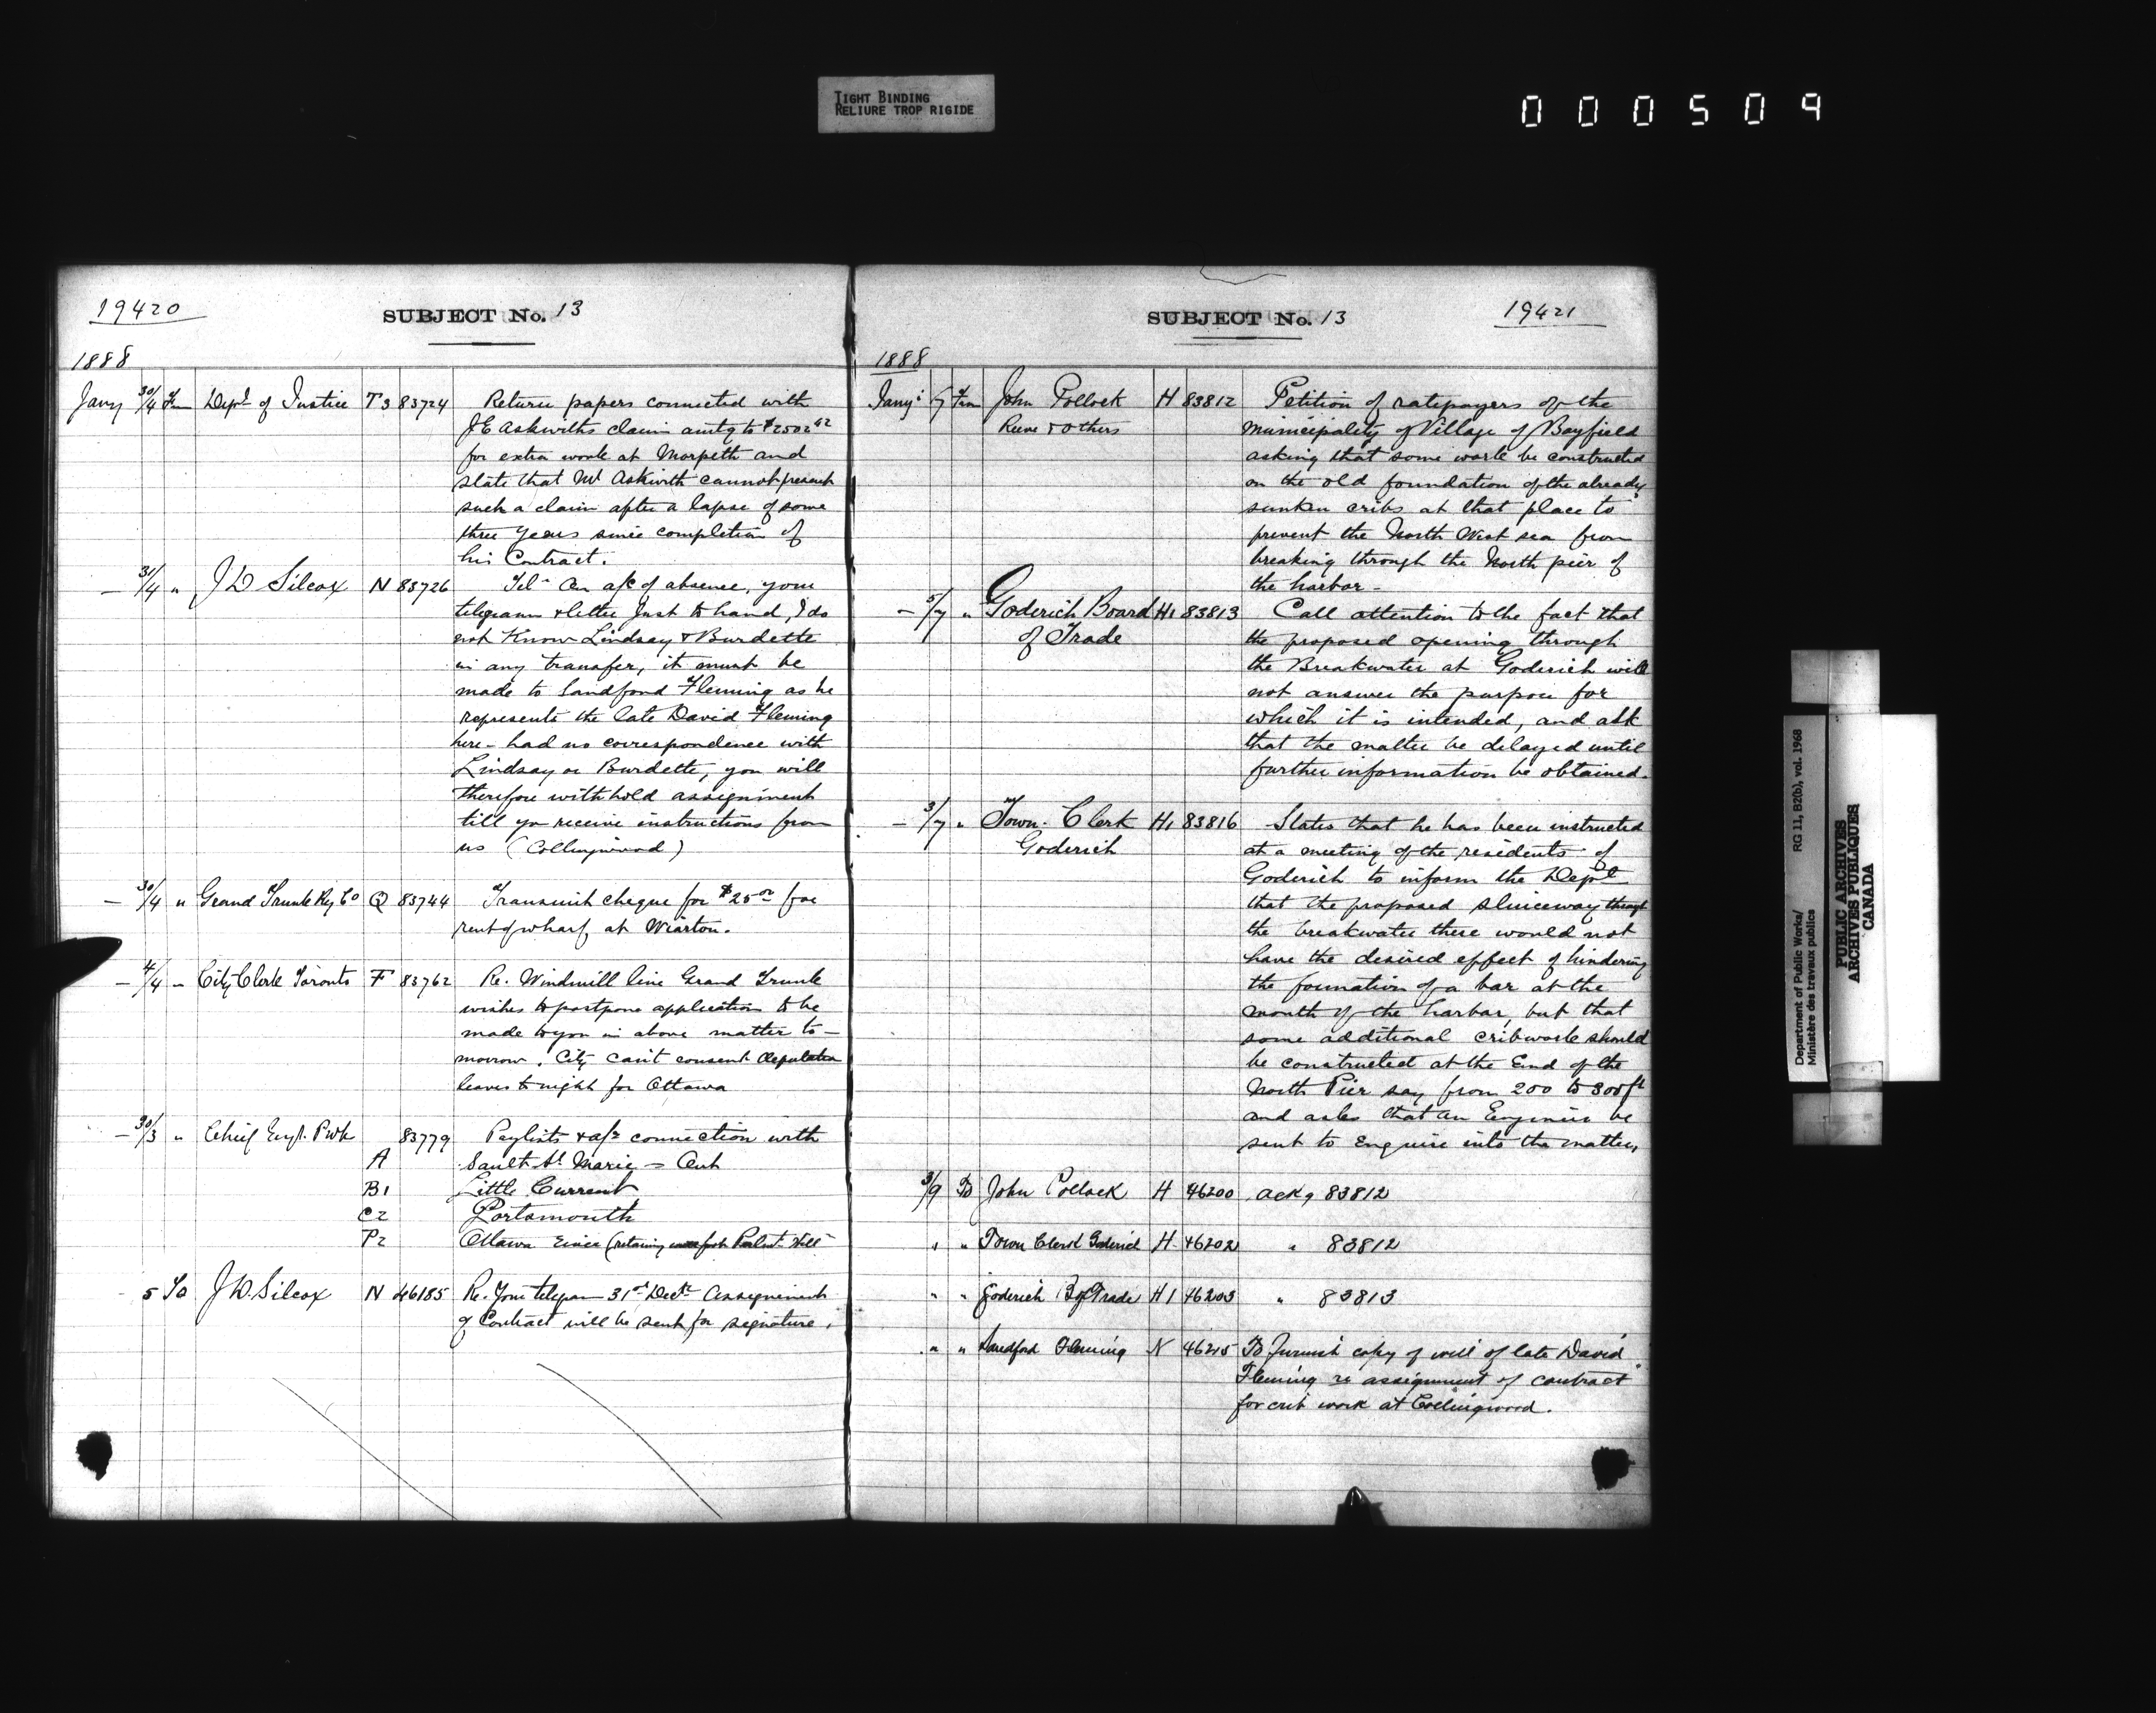 TIGHT BINDING
RELIURE TROP RIGIDE
000509
19420
SUBJECT No. 13
1888
Jany 30/4 Fm Dept of Justice T3 83724 Return papers connected with
J E Askwiths claim amtg to $2502
for extra work at Morpeth and
state that Mr Askwith cannot present
such a claim after a lapse of some
three years since completion of
his Contract.
— 31/4 " J D Silcox N 83726 Tel - On a/c of absence, your
telegram & letter just to hand, I do
not Know Lindsay & Burdette
in any transfer, it must be
made to Sandford Fleming as he
represents the late David Fleming
here - had no correspondence with
Lindsay or Burdette, you will
therefore withhold assignment
till you receive instructions from
us (Collingwood)
— 30/4 " Grand Trunk Ry Co Q 83744 Transmit cheque for $25.00 for
rent of wharf at Wiarton.
— 4/4 " City Clerk Toronto F 83762 Re. Windmill line Grand Trunk
wishes to postpone application to be
made to you in above matter to-
morrow. City can't consent deputation
leaves to night for Ottawa
— 30/3 " Chief Engr. P Wks 83779 Paylists & a/cs connection with
A Sault St Marie - Ont
B1 Little Current
C2 Portsmouth
P2 Ottawa River (retaining
5 To J D. Silcox N 46185 Re. Your telegram 31st Decr Assignment
of Contract will be sent for signature.
SUBJECT No. 13
19421
1888
Jany 5/7 Fm John Pollock H 83812 Petition of ratepayers of the
Reeve & others municipality of Village of Bayfield
asking that some work be constructed
on the old foundation of the already
sunken cribs at that place to
prevent the North West sea from
breaking through the North pier of
the harbor -
— 5/7 " Goderich Board H1 83813 Call attention to the fact that
of Trade the proposed opening through
the Breakwater at Goderich will
not answer the purpose for
which it is intended, and ask
that the matter be delayed until
further information be obtained.
— 3/7 " Town Clerk H1 83816 States that he has been instructed
Goderich at a meeting of the residents of
Goderich to inform the Dept
that the proposed sluiceway through
the breakwater there would not
have the desired effect of hindering
the formation of a bar at the
mouth of the harbor, but that
some additional cribwork should
be constructed at the End of the
North Pier say from 200 to 300 ft
and asks that an Engineer be
sent to Enquire into the matter,
3/9 To John Pollock H 46200 ackg 83812
" " Town Clerk Goderich H 46202 " 83812
" " Goderich B of Trade H1 46203 " 83813
" " Sandford Fleming N 46215 To furnish copy of will of late David
Fleming re assignment of contract
for crib work at Collingwood.
Department of Public Works/
Ministère des travaux publics
RG 11, B2(b), vol. 1968
PUBLIC ARCHIVES
ARCHIVES PUBLIQUES
CANADA